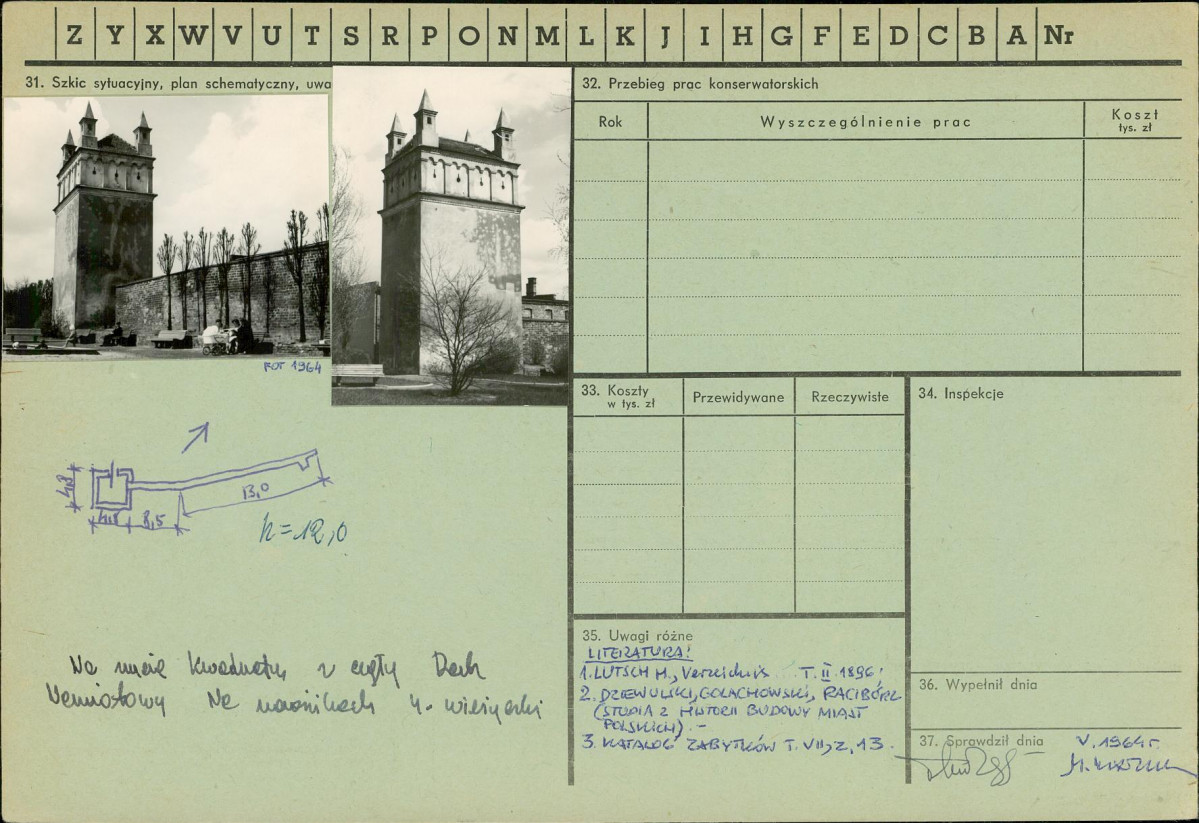 Z Y X W V U T S R P O N M L K J I H G F E D C B A Nr
31. Szkic sytuacyjny, plan schematyczny, uwa
FOT 1964
4,8
4,8 8,5
13,0
h=12,0
Na rzucie kwadratu z cegły Dach
Namiotowy Na narożnikach 4. wieżyczki
32. Przebieg prac konserwatorskich
Rok Wyszczególnienie prac Koszt
tys. zł
33. Koszty
w tys. zł
Przewidywane Rzeczywiste
34. Inspekcje
35. Uwagi różne
LITERATURA:
1. LUTSCH H., Verzeichnis... T. II. 1896.
2. DZIEWULSKI, GOLACHOWSKI, RACIBÓRZ
(STUDIA Z HISTORII BUDOWY MIAST
POLSKICH). –
3. KATALOG ZABYTKÓW T. VII, Z, 13.
36. Wypełnił dnia
37. Sprawdził dnia
V. 1964 r.